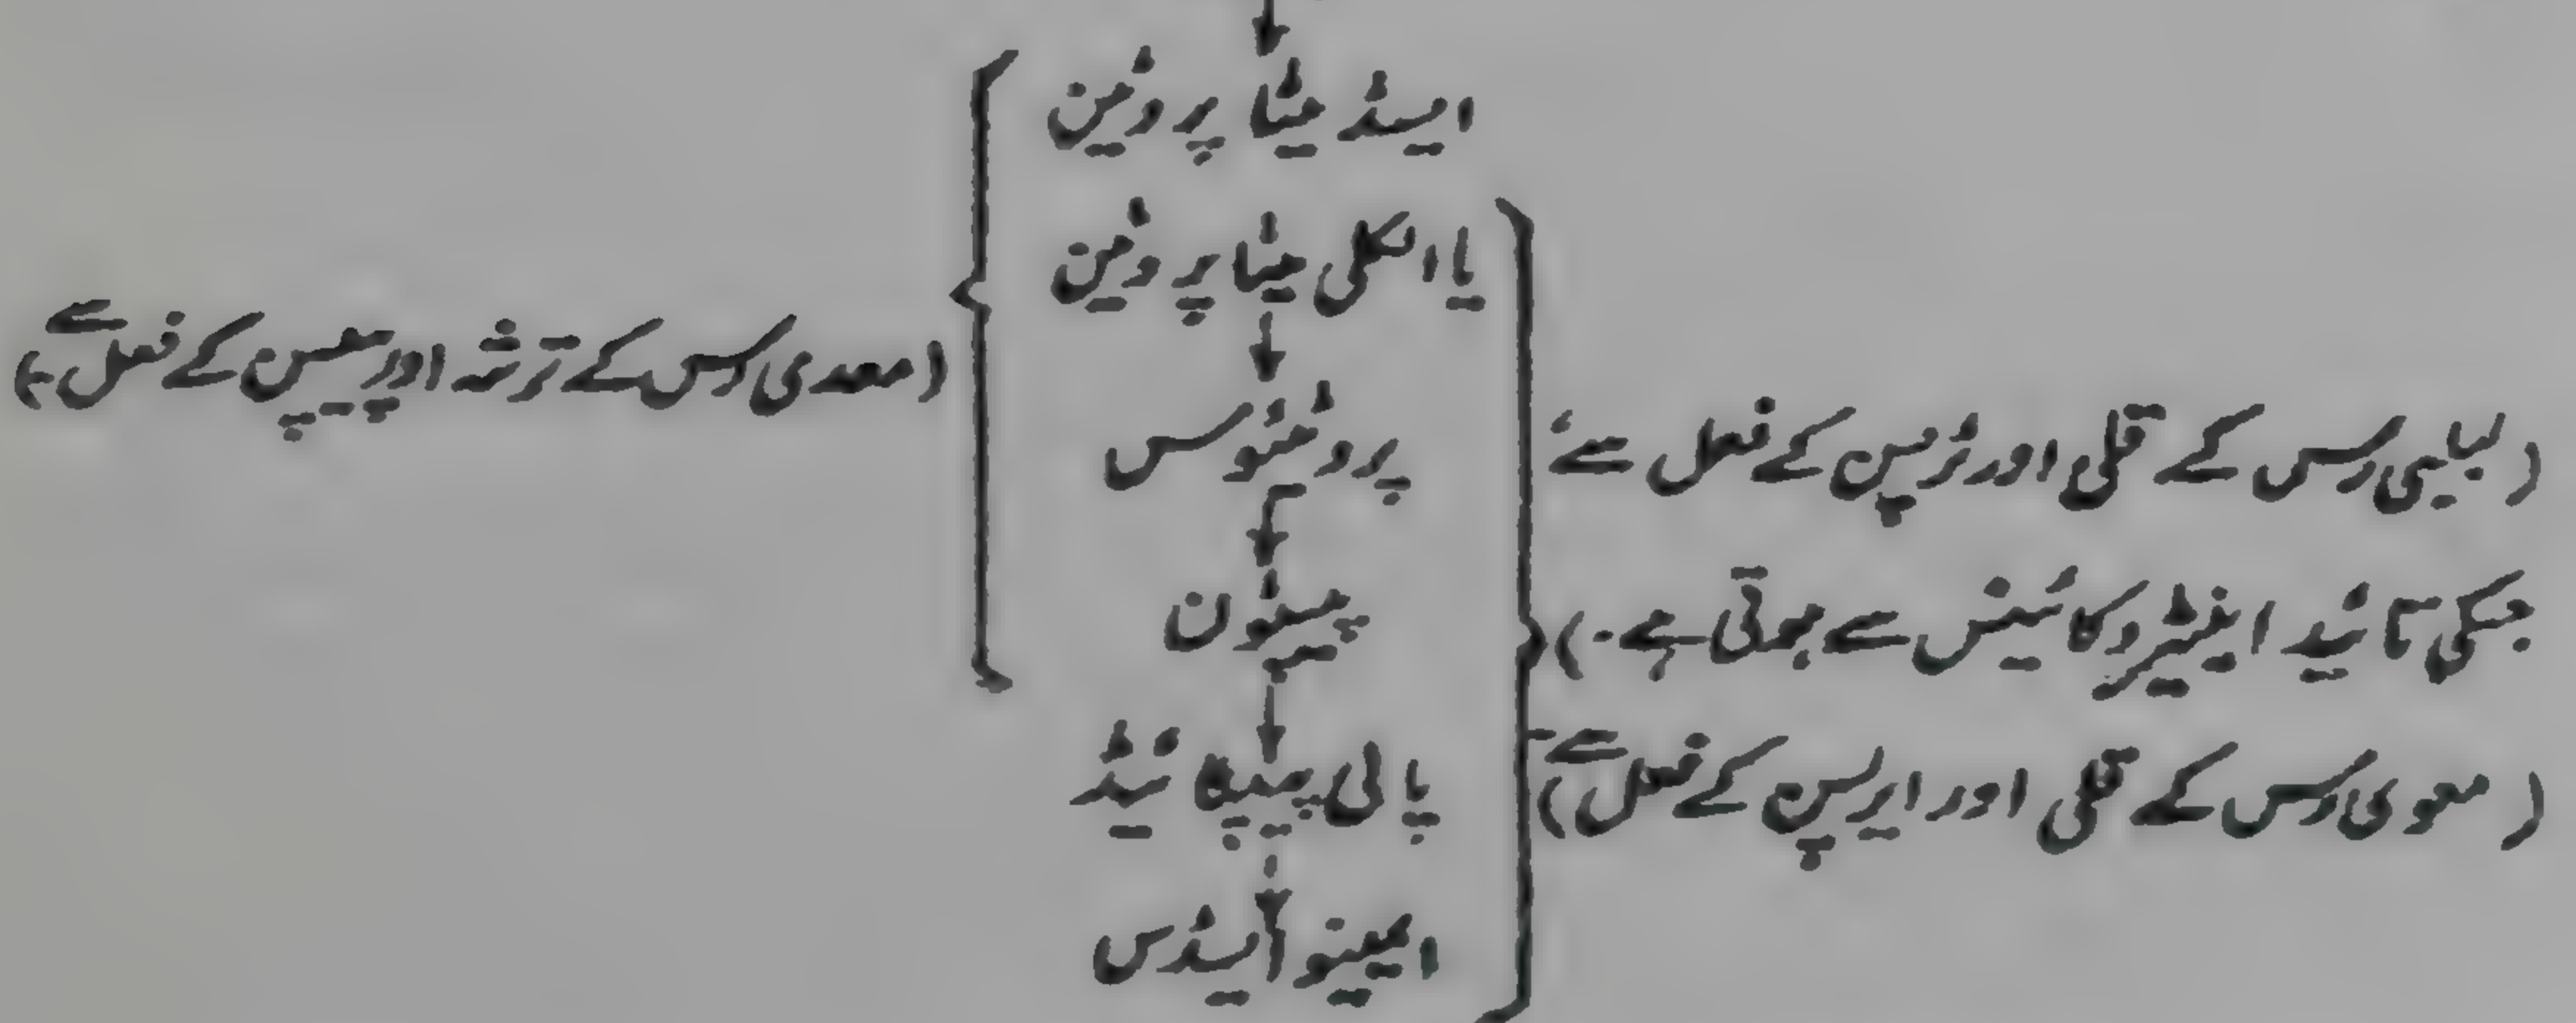 ایسڈ میٹا پروٹین
یا الکلی میٹا پروٹین
پروٹیئوس
پیپٹون
پالی پیپٹائیڈ
امینو ایسڈس
(معدی رس کے ترشہ اور پیپسِن کے فعل سے)
(لبلبی رس کے قلی اور ٹرپسِن کے فعل سے،
جسکی تائید اینٹیروکائینس سے ہوتی ہے۔)
(معوی رس کے قلی اور اریپسِن کے فعل سے)